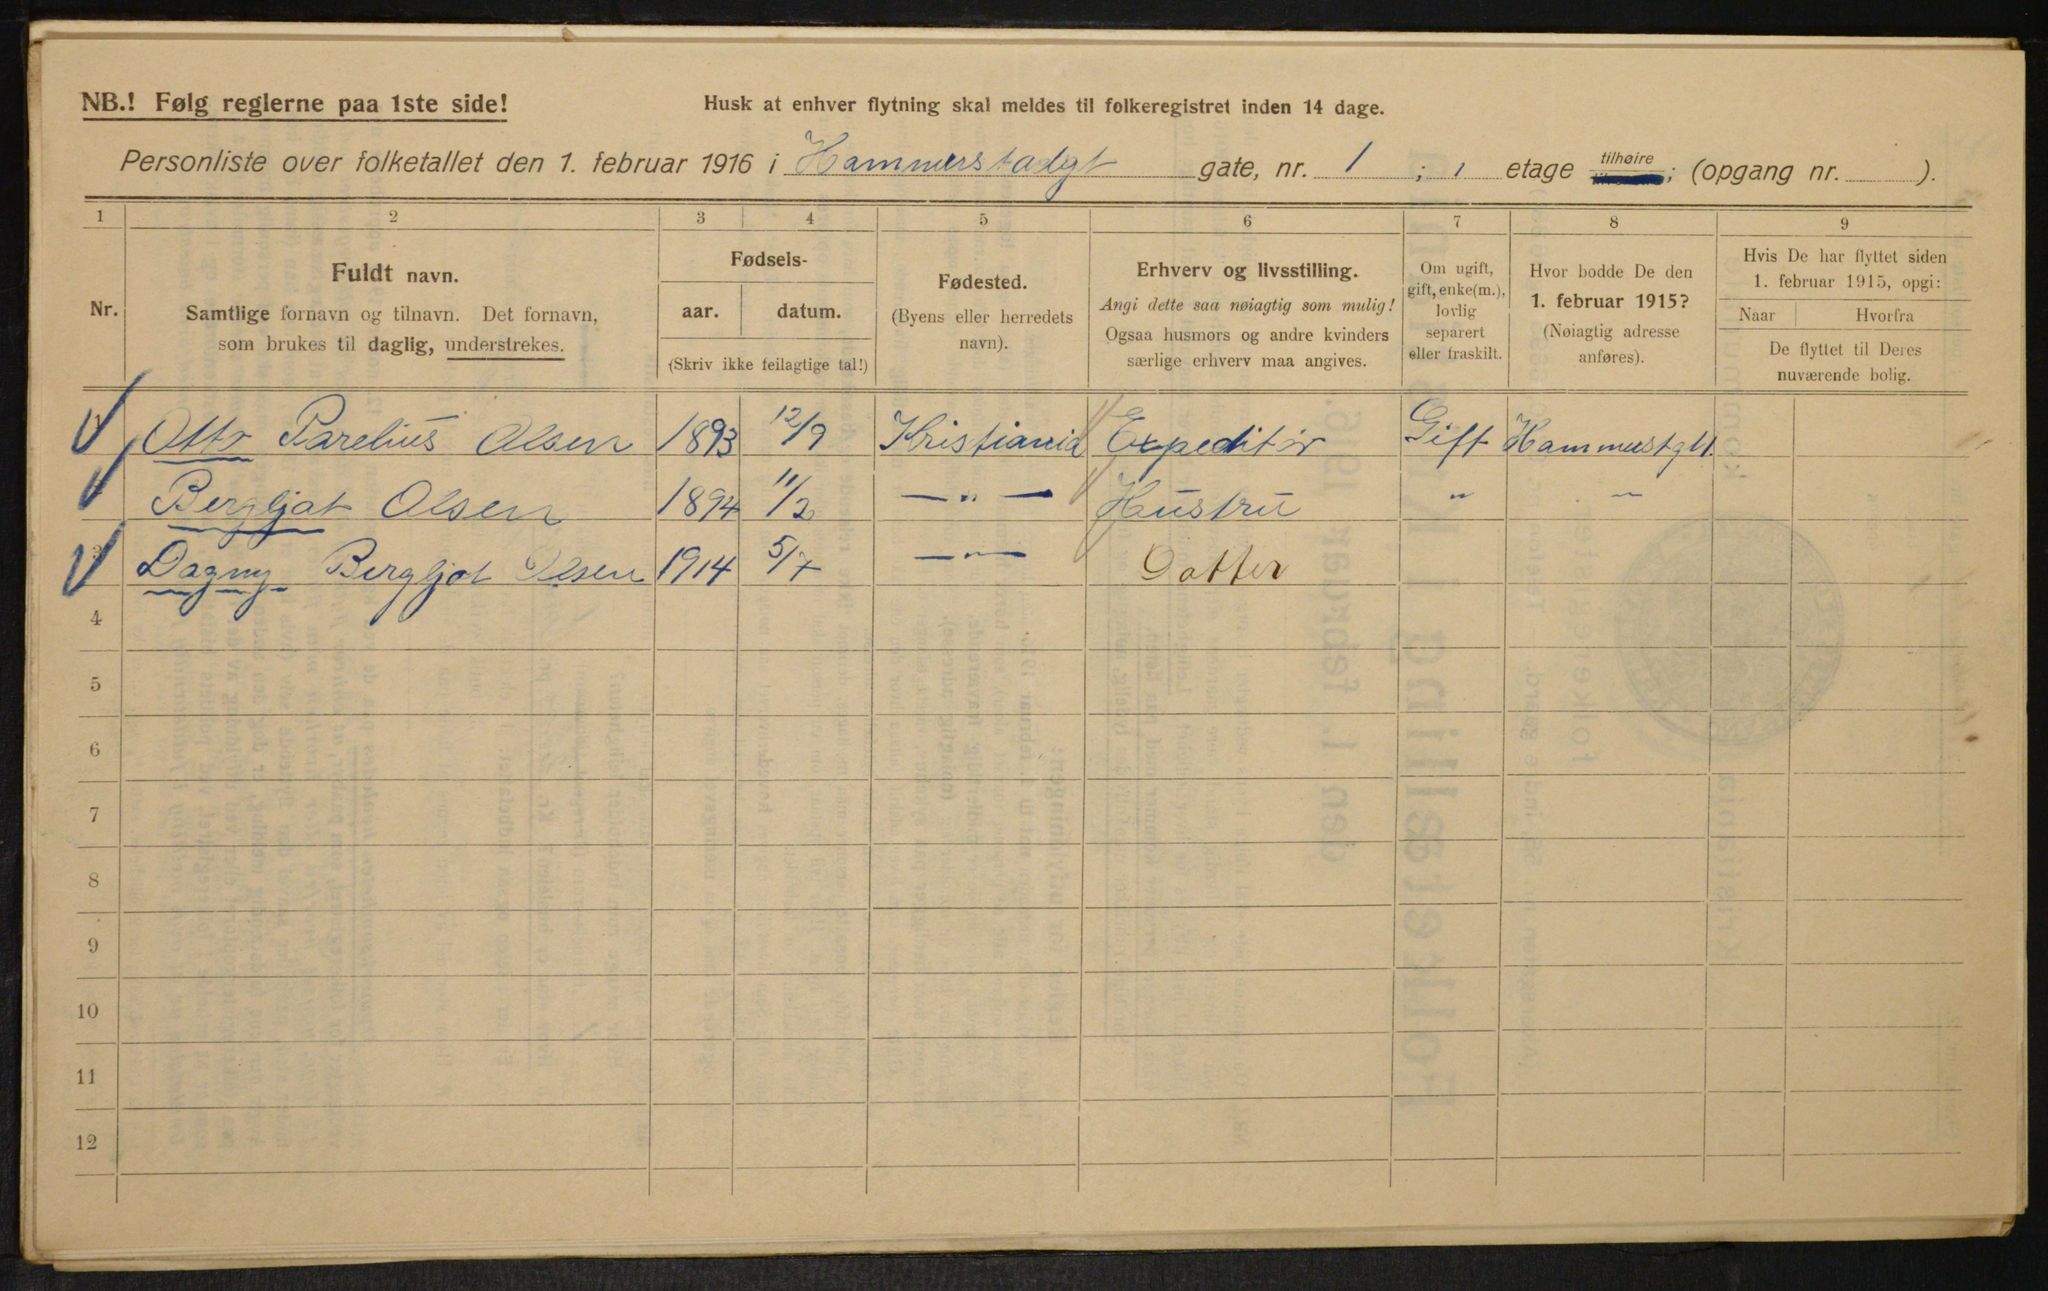 NB.! Følg reglerne paa 1ste side!
Husk at enhver flytning skal meldes til folkeregistret inden 14 dage.
Personliste over folketallet den 1. februar 1916 i Hammerstadgt gate, nr. 1 ; 1 etage tilhøire ; (opgang nr. ).
1 2 3 4 5 6 7 8 9
Nr.
Fuldt navn.
Samtlige fornavn og tilnavn. Det fornavn,
som brukes til daglig, understrekes.
Fødsels-
aar. datum.
(Skriv ikke feilagtige tal!)
Fødested.
(Byens eller herredets
navn).
Erhverv og livsstilling.
Angi dette saa nøiagtig som mulig!
Ogsaa husmors og andre kvinders
særlige erhverv maa angives.
Om ugift,
gift, enke(m.),
lovlig
separert
eller fraskilt.
Hvor bodde De den
1. februar 1915?
(Nøiagtig adresse
anføres).
Hvis De har flyttet siden
1. februar 1915, opgi:
Naar Hvorfra
De flyttet til Deres
nuværende bolig.
Otto Parelius Olsen 1893 12/9 Kristiania Expeditør Gift
Bergljot Olsen 1894 11/2 — " — Hustru " "
3 Dagny Bergljot Olsen 1914 5/7 — " — Datter
4
5
6
7
8
9
10
11
12